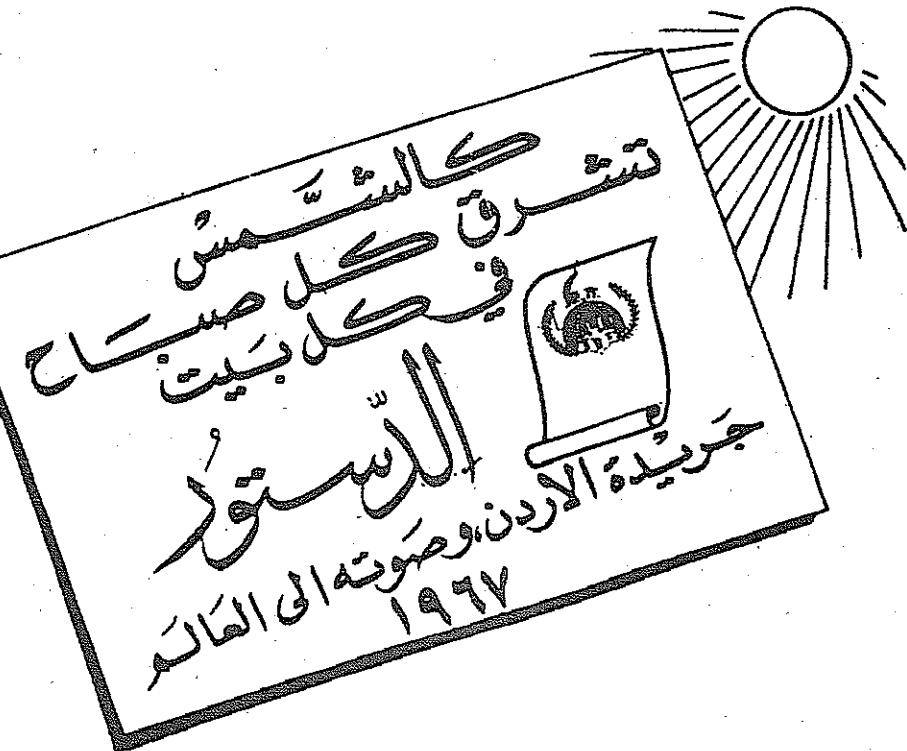 كالشَّمسْ
تشرق كل صباح
في كل بَيت
الدّستورُ
جَريْدة الاردن، وصَوته الى العَالَم
١٩٦٧